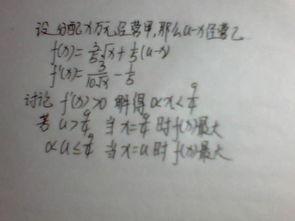 设分配x万元经营甲,那么u-x经营乙
f(x)=3/5√x+1/5(u-x)
f'(x)=3/10√x-1/5
讨论 f'(x)>0 解得 0<x<9/4
若 u>9/4 当x=9/4时f(x)最大
0<u≤9/4 当x=u时f(x)最大